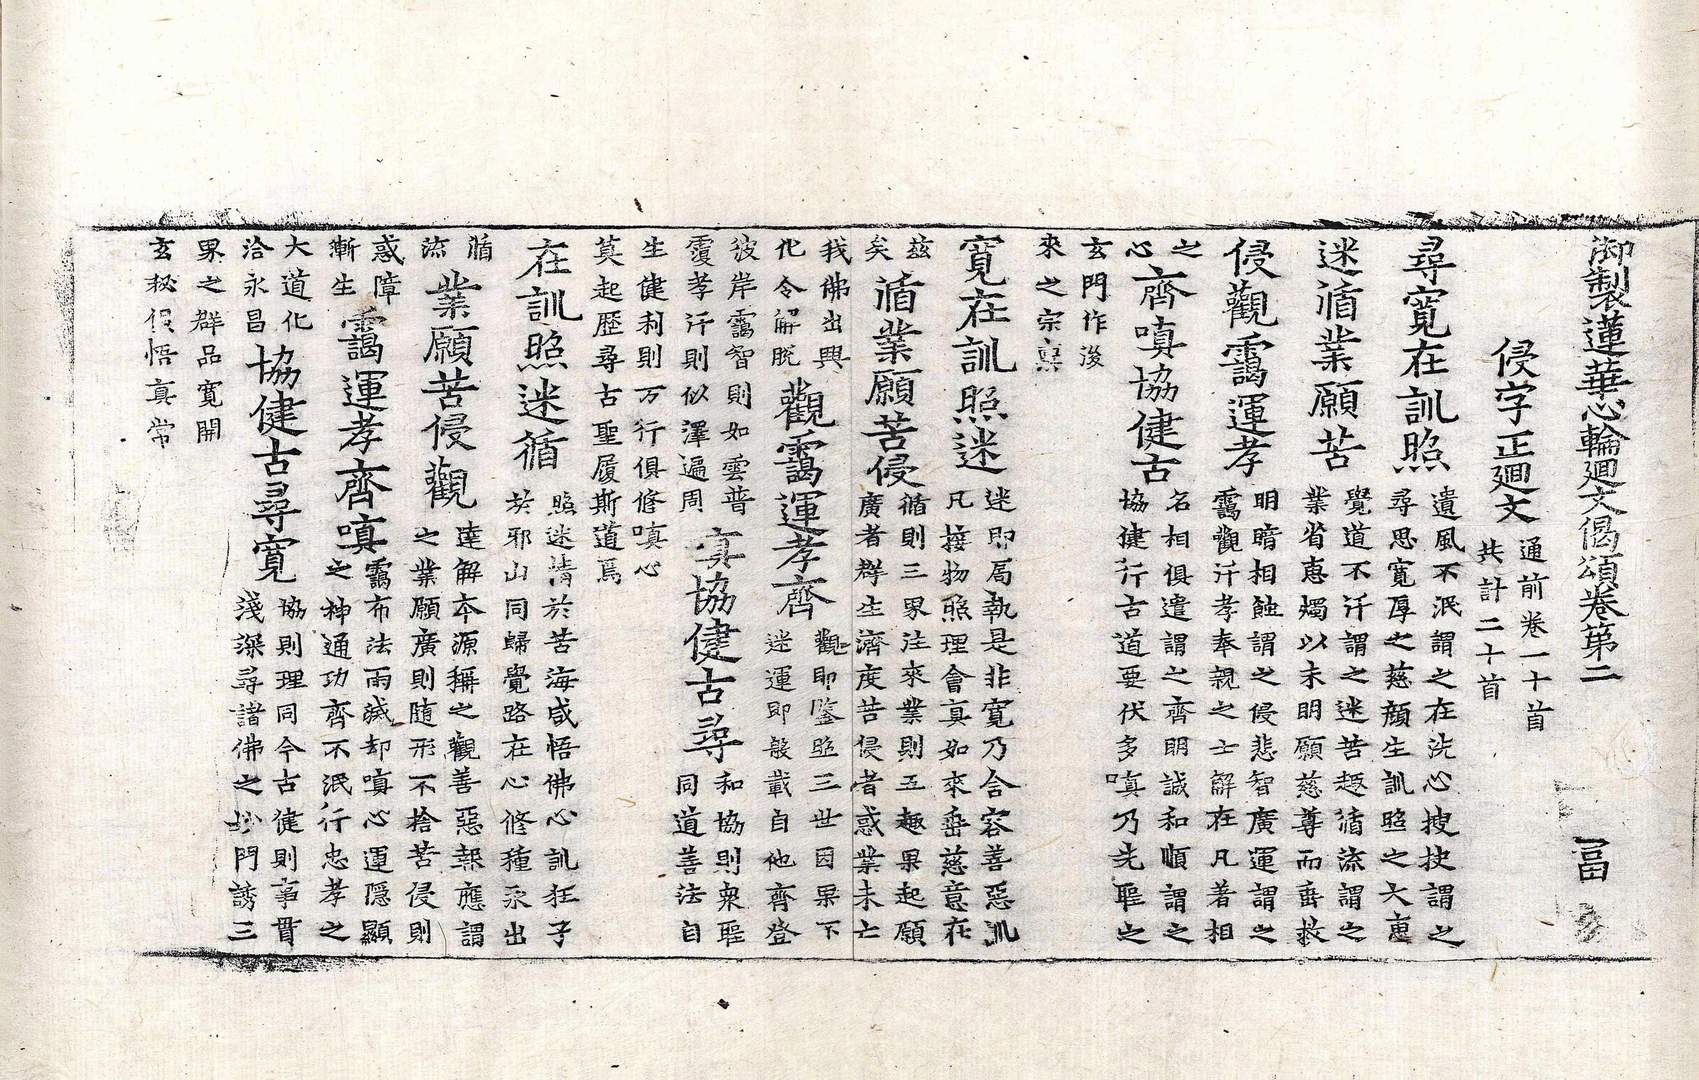 御製蓮華心輪廻文偈頌卷第二　富
侵字正廻文 通前卷一十首
共計二十首
尋寬在訓照 遺風不泯謂之在洗心搜抉謂之
尋思寬厚之慈顏生訓照之大惠
迷循業願苦 覺道不汙謂之迷苦趣循流謂之
業省惠燭以未明願慈尊而垂救
侵觀靄運孝 明暗相蝕謂之侵悲智廣運謂之
靄觀汙孝奉親之士解在凡著相
之
心
齊嗔協健古 名相俱遣謂之齊明誠和順謂之
協健行古道要伏多嗔乃先聖之
玄門作後
來之宗
寬在訓照迷 迷即局執是非寬乃合容善惡訓
凡接物照理會真如來垂慈意在
茲
矣
循業願苦侵 循則三界注來業則五趣果起願
廣者群生濟度苦侵者惑業未亡
我佛出興
化令解脫
觀靄運孝齊 觀即鑒照三世因果下
迷運即般載自他齊登
彼岸靄智則如雲普
覆孝汙則似澤遍周
嗔協健古尋 和協則衆聖
同道善法自
生健利則万行俱修嗔心
莫起歷尋古聖履斯道焉
在訓照迷循 照迷情於苦海咸悟佛心訓狂子
於邪山同歸覺路在心修種永出
循
流
業願苦侵觀 達解本源稱之觀善惡報應謂
之業願廣則随形不捨苦侵則
惑障
漸生
靄運孝齊嗔 靄布法雨滅却嗔心運隱顯
之神通功齊不泯行忠孝之
大道化
洽永昌
協健古尋寬 協則理同今古健則事貫
淺深尋諸佛之妙門誘三
界之群品寬開
玄秘俱悟真常